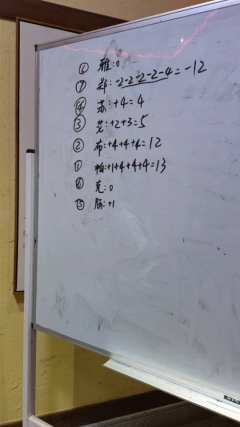 ⑥ 雅:0
⑦ 郑:-2-2-2-2-4=-12
④ 苏:+4=4
③ 芝:+2+3=5
② 布:+4+4+4=12
① 帕:+1+4+4+4=13
⑥ 克:0
⑤ :+1